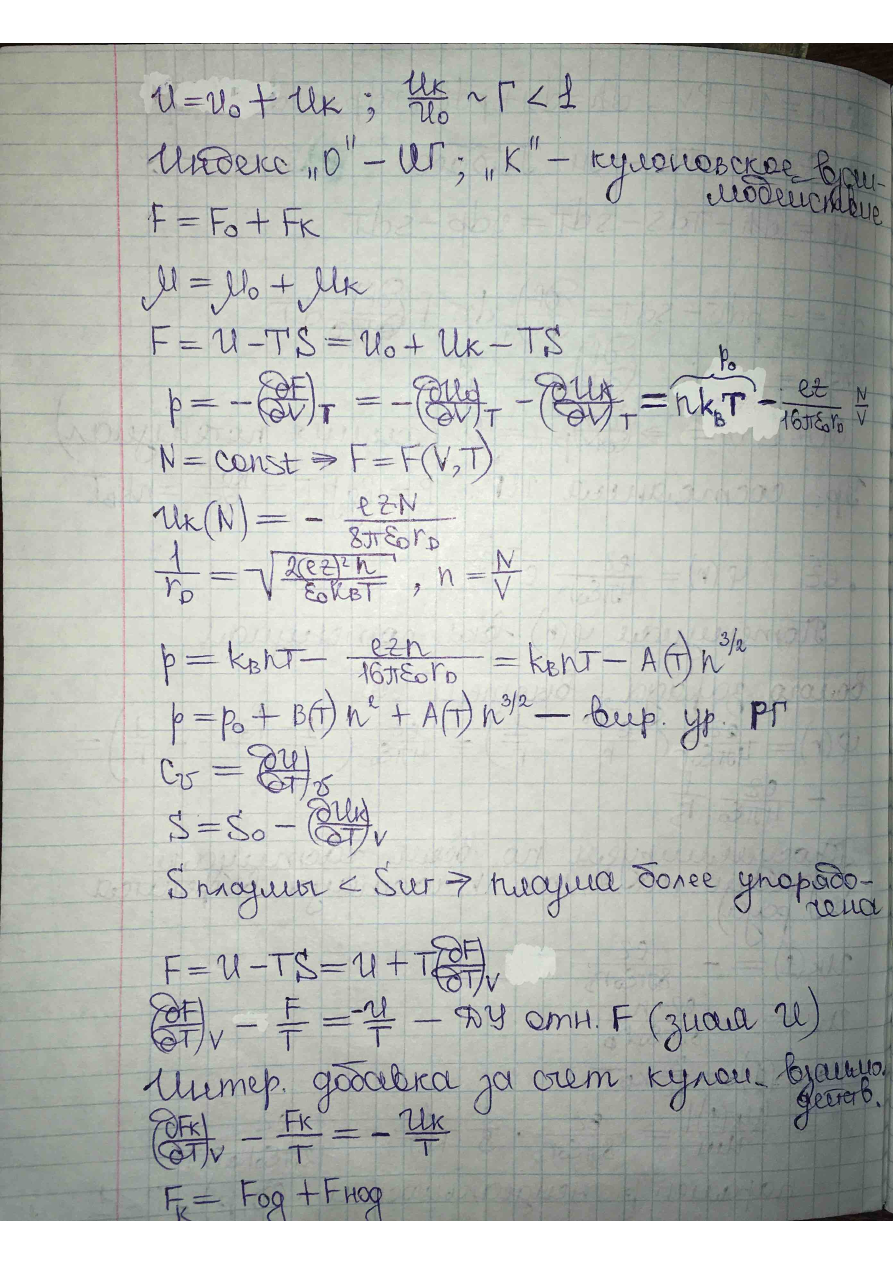 U = U₀ + Uк ; Uк/U₀ ~ Γ < 1
Индекс „0" – ИГ ; „К" – кулоновское взаимодействие
F = F₀ + Fк
μ = μ₀ + μк
F = U – TS = U₀ + Uк – TS
p = –(∂F/∂V)_T = –(∂U₀/∂V)_T – (∂Uк/∂V)_T = nk_BT (p₀) – ez/(16πε₀r_D) N/V
N = const ⇒ F = F(V,T)
Uк(N) = – ezN/(8πε₀r_D)
1/r_D = √(2(ez)²n/(ε₀k_BT)) , n = N/V
p = k_BnT – ezn/(16πε₀r_D) = k_BnT – A(T) n^{3/2}
p = p₀ + B(T) n² + A(T) n^{3/2} — вир. ур. РГ
C_v = (∂U/∂T)_v
S = S₀ – (∂Uк/∂T)_V
S плазмы < S иг ⇒ плазма более упорядочена
F = U – TS = U + T(∂F/∂T)_V
(∂F/∂T)_V – F/T = –U/T – ДУ отн. F (зная U)
Интер. добавка за счет кулон. взаимодейств.
(∂Fк/∂T)_V – Fк/T = – Uк/T
F_к = Fод + Fнод